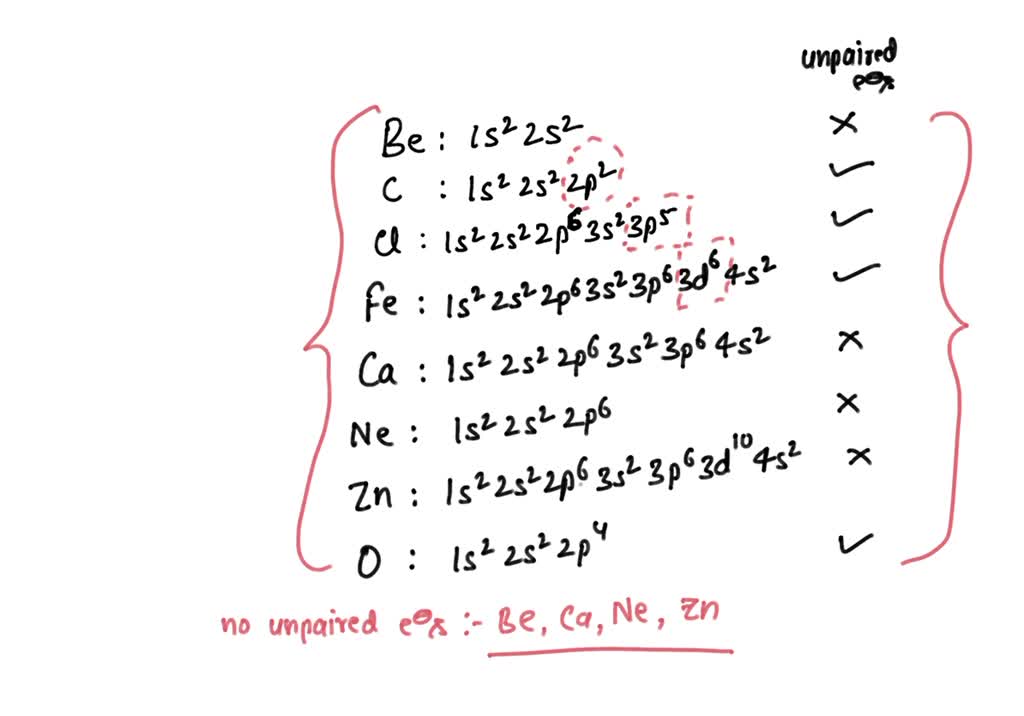 unpaired
e⊖s
Be : 1s² 2s² ×
C : 1s² 2s² 2p² ✓
Cl : 1s² 2s² 2p⁶ 3s² 3p⁵ ✓
Fe : 1s² 2s² 2p⁶ 3s² 3p⁶ 3d⁶ 4s² ✓
Ca : 1s² 2s² 2p⁶ 3s² 3p⁶ 4s² ×
Ne : 1s² 2s² 2p⁶ ×
Zn : 1s² 2s² 2p⁶ 3s² 3p⁶ 3d¹⁰ 4s² ×
O : 1s² 2s² 2p⁴ ✓
no unpaired e⊖s :- Be, Ca, Ne, Zn